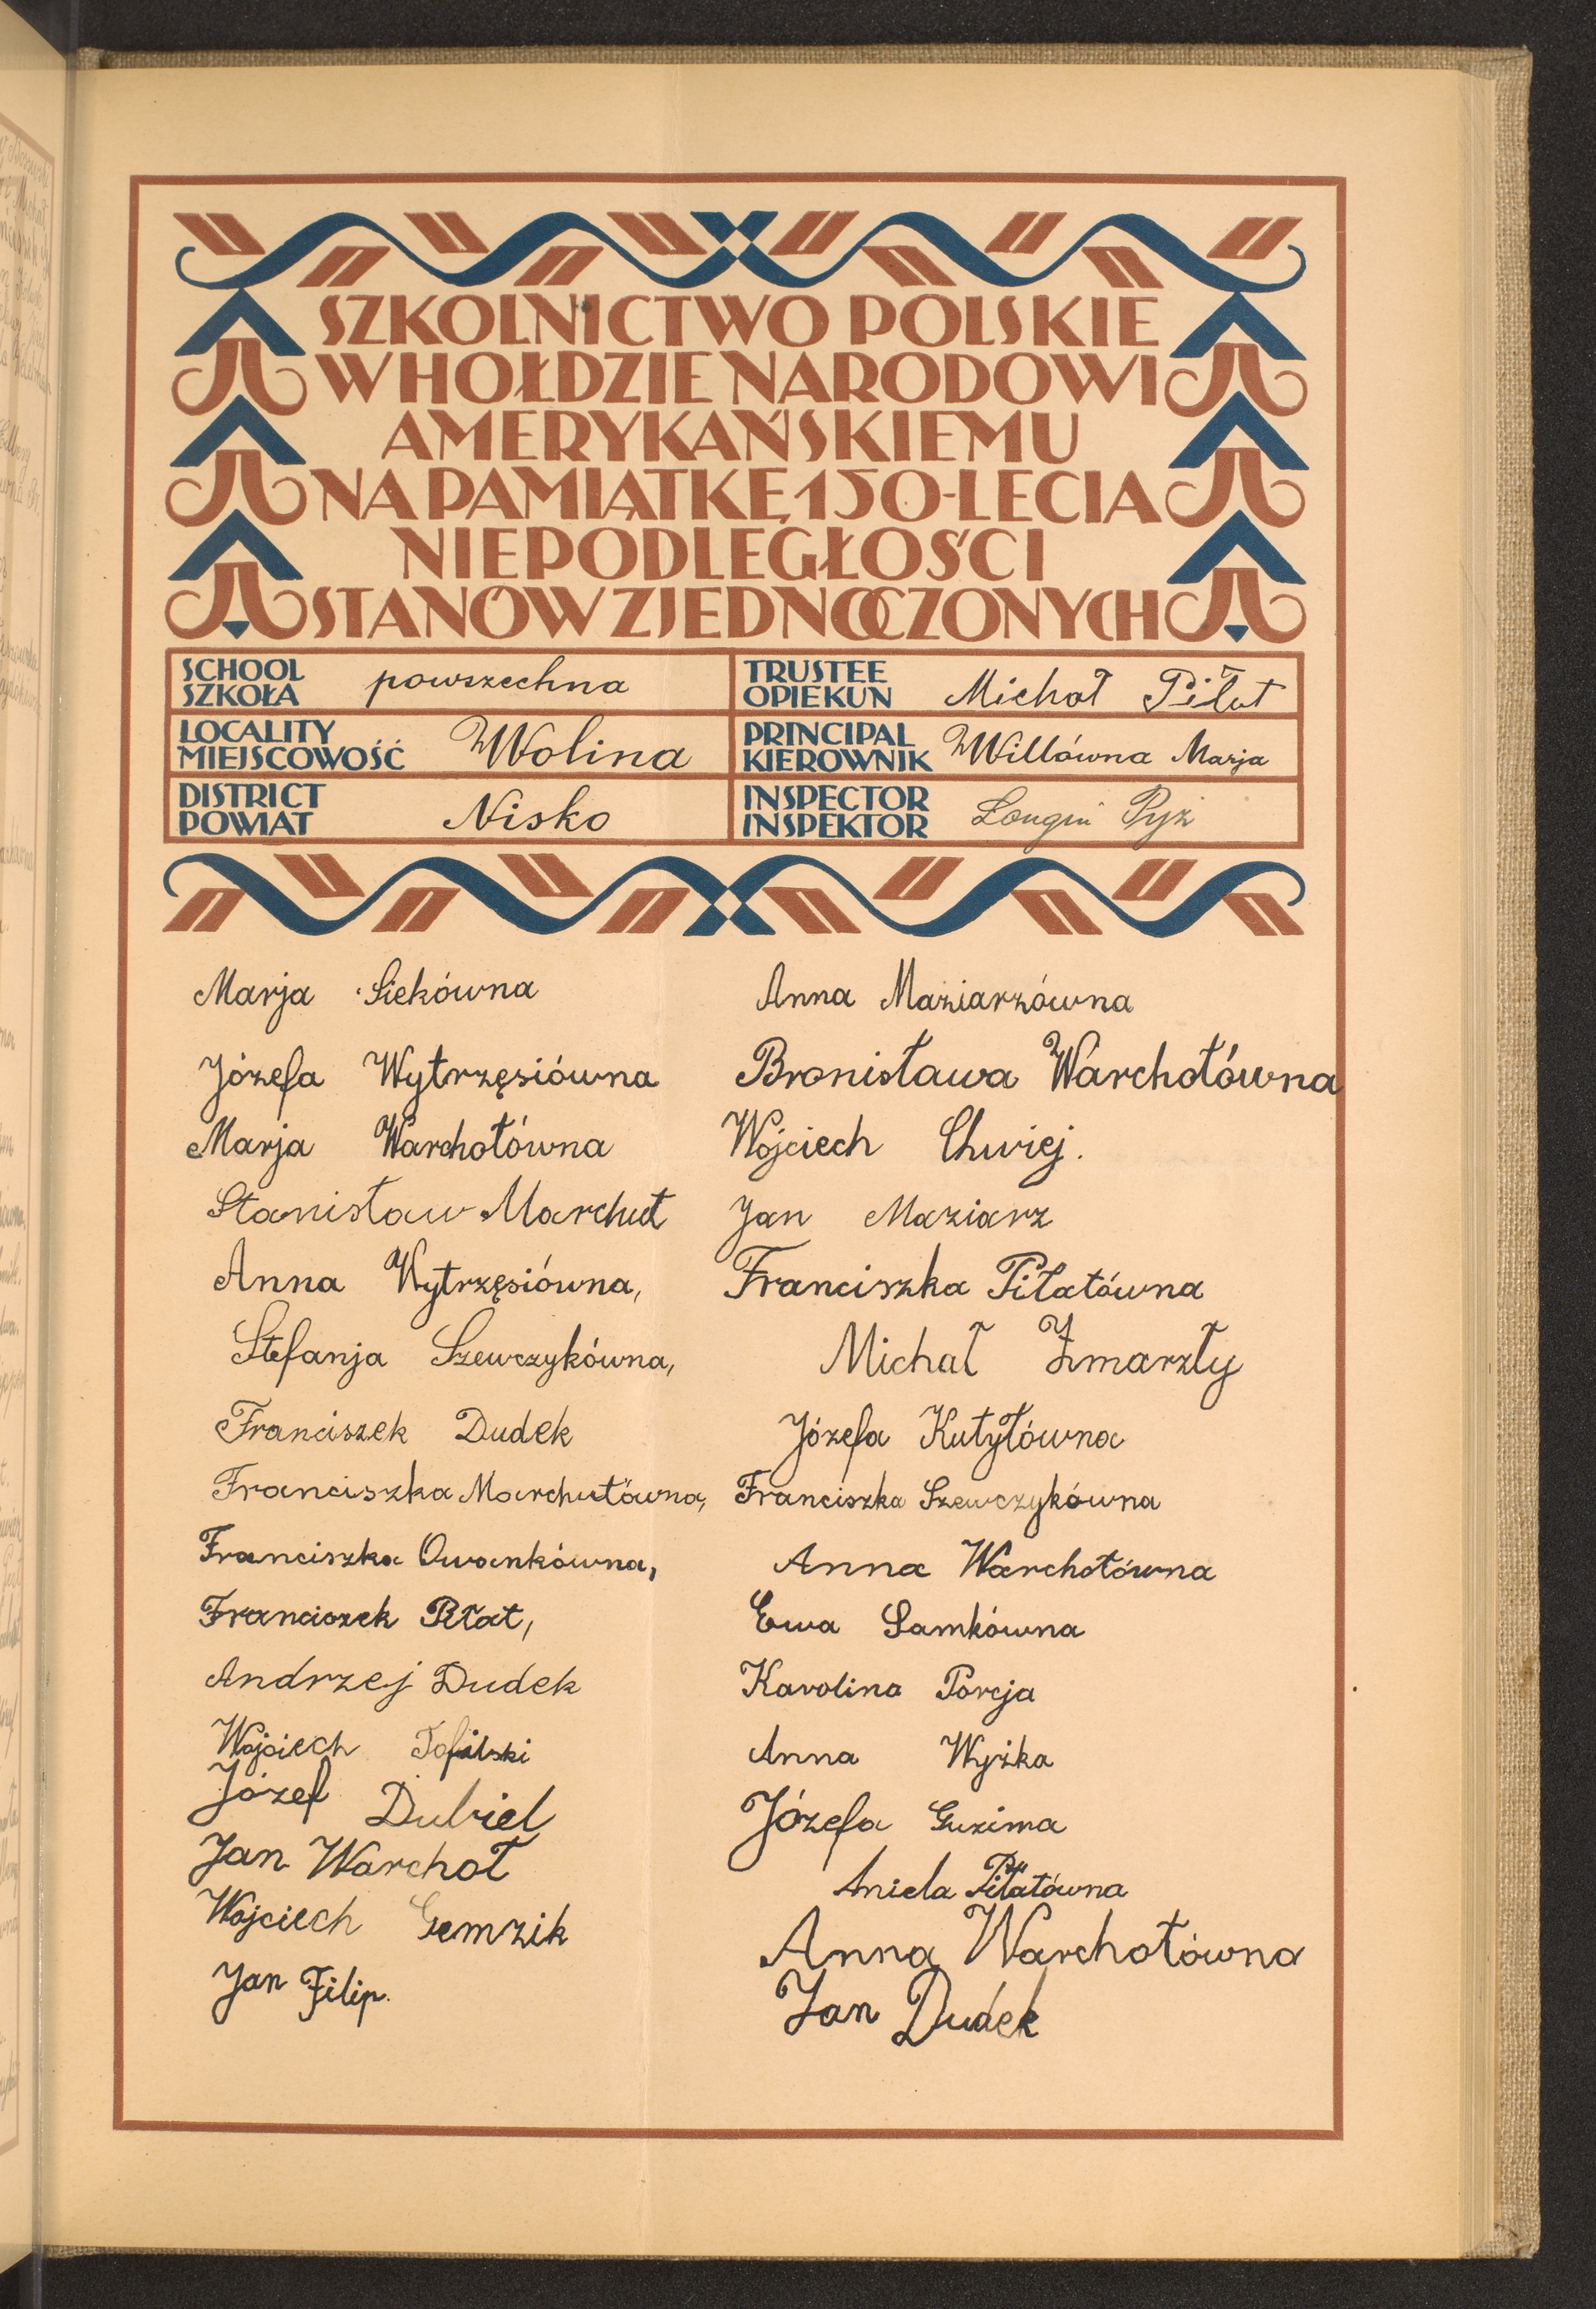 SZKOLNICTWO POLSKIE
W HOŁDZIE NARODOWI
AMERYKAŃSKIEMU
NA PAMIĄTKĘ 150-LECIA
NIEPODLEGŁOŚCI
STANÓW ZJEDNOCZONYCH
SCHOOL
SZKOŁA powszechna
TRUSTEE
OPIEKUN Michał Piłat
LOCALITY
MIEJSCOWOŚĆ Wolina
PRINCIPAL
KIEROWNIK Willówna Marja
DISTRICT
POWIAT Nisko
INSPECTOR
INSPEKTOR Longin Pyż
Marja Siekówna
Józefa Wytrzęsiówna
Marja Warchołówna
Stanisław Marchut
Anna Wytrzęsiówna,
Stefanja Szewczykówna,
Franciszek Dudek
Franciszka Marchutówna,
Franciszka Owankówna,
Franciszek Piłat,
Andrzej Dudek
Wojciech Tofilski
Józef Dubiel
Jan Warchoł
Wojciech Gemzik
Jan Filip.
Anna Maziarzówna
Bronisława Warchołówna
Wojciech Chwiej.
Jan Maziarz
Franciszka Piłatówna
Michał Zmarzły
Józefa Kutyłówna
Franciszka Szewczykówna
Anna Warchołówna
Ewa Samkówna
Karolina Porcja
Anna Wyżka
Józefa Guzima
Aniela Piłatówna
Anna Warchołówna
Jan Dudek